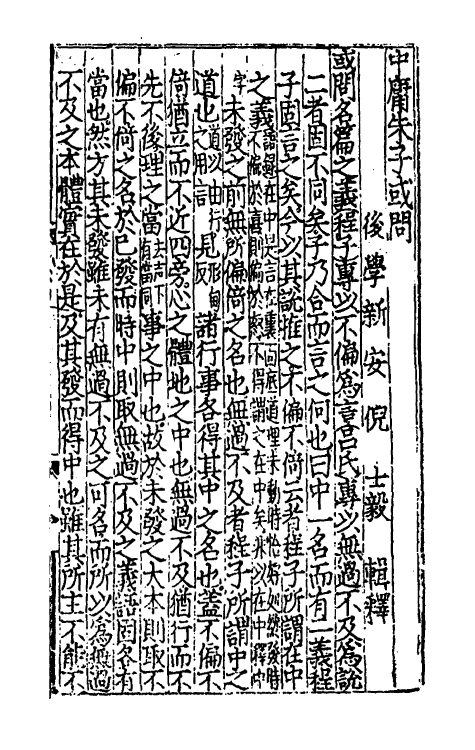 中庸朱子或問
後學新安倪士毅輯釋
或問名篇之義程子專以不偏為言呂氏專以無過不及為說
二者固不同矣子乃合而言之何也曰中一名而有二義程
子固言之矣今以其說推之不偏不倚云者程子所謂在中
之義語錄在中是言在裏面底道理未動時恰好處纔發時不偏於喜則偏於怒不得謂之在中矣
未發之前無所偏倚之名也無過不及者程子所謂中之
道也道以由行之用言見形甸反諸行事各得其中之名也蓋不偏不
倚猶立而不近四旁心之體地之中也無過不及猶行而不
先不後理之當去聲下有當同事之中也故於未發之大本則取不
偏不倚之名於已發而時中則取無過不及之義語固各有
當也然方其未發雖未有無過不及之可名而所以為無過
不及之本體實在於是及其發而得中也雖其所主不能不